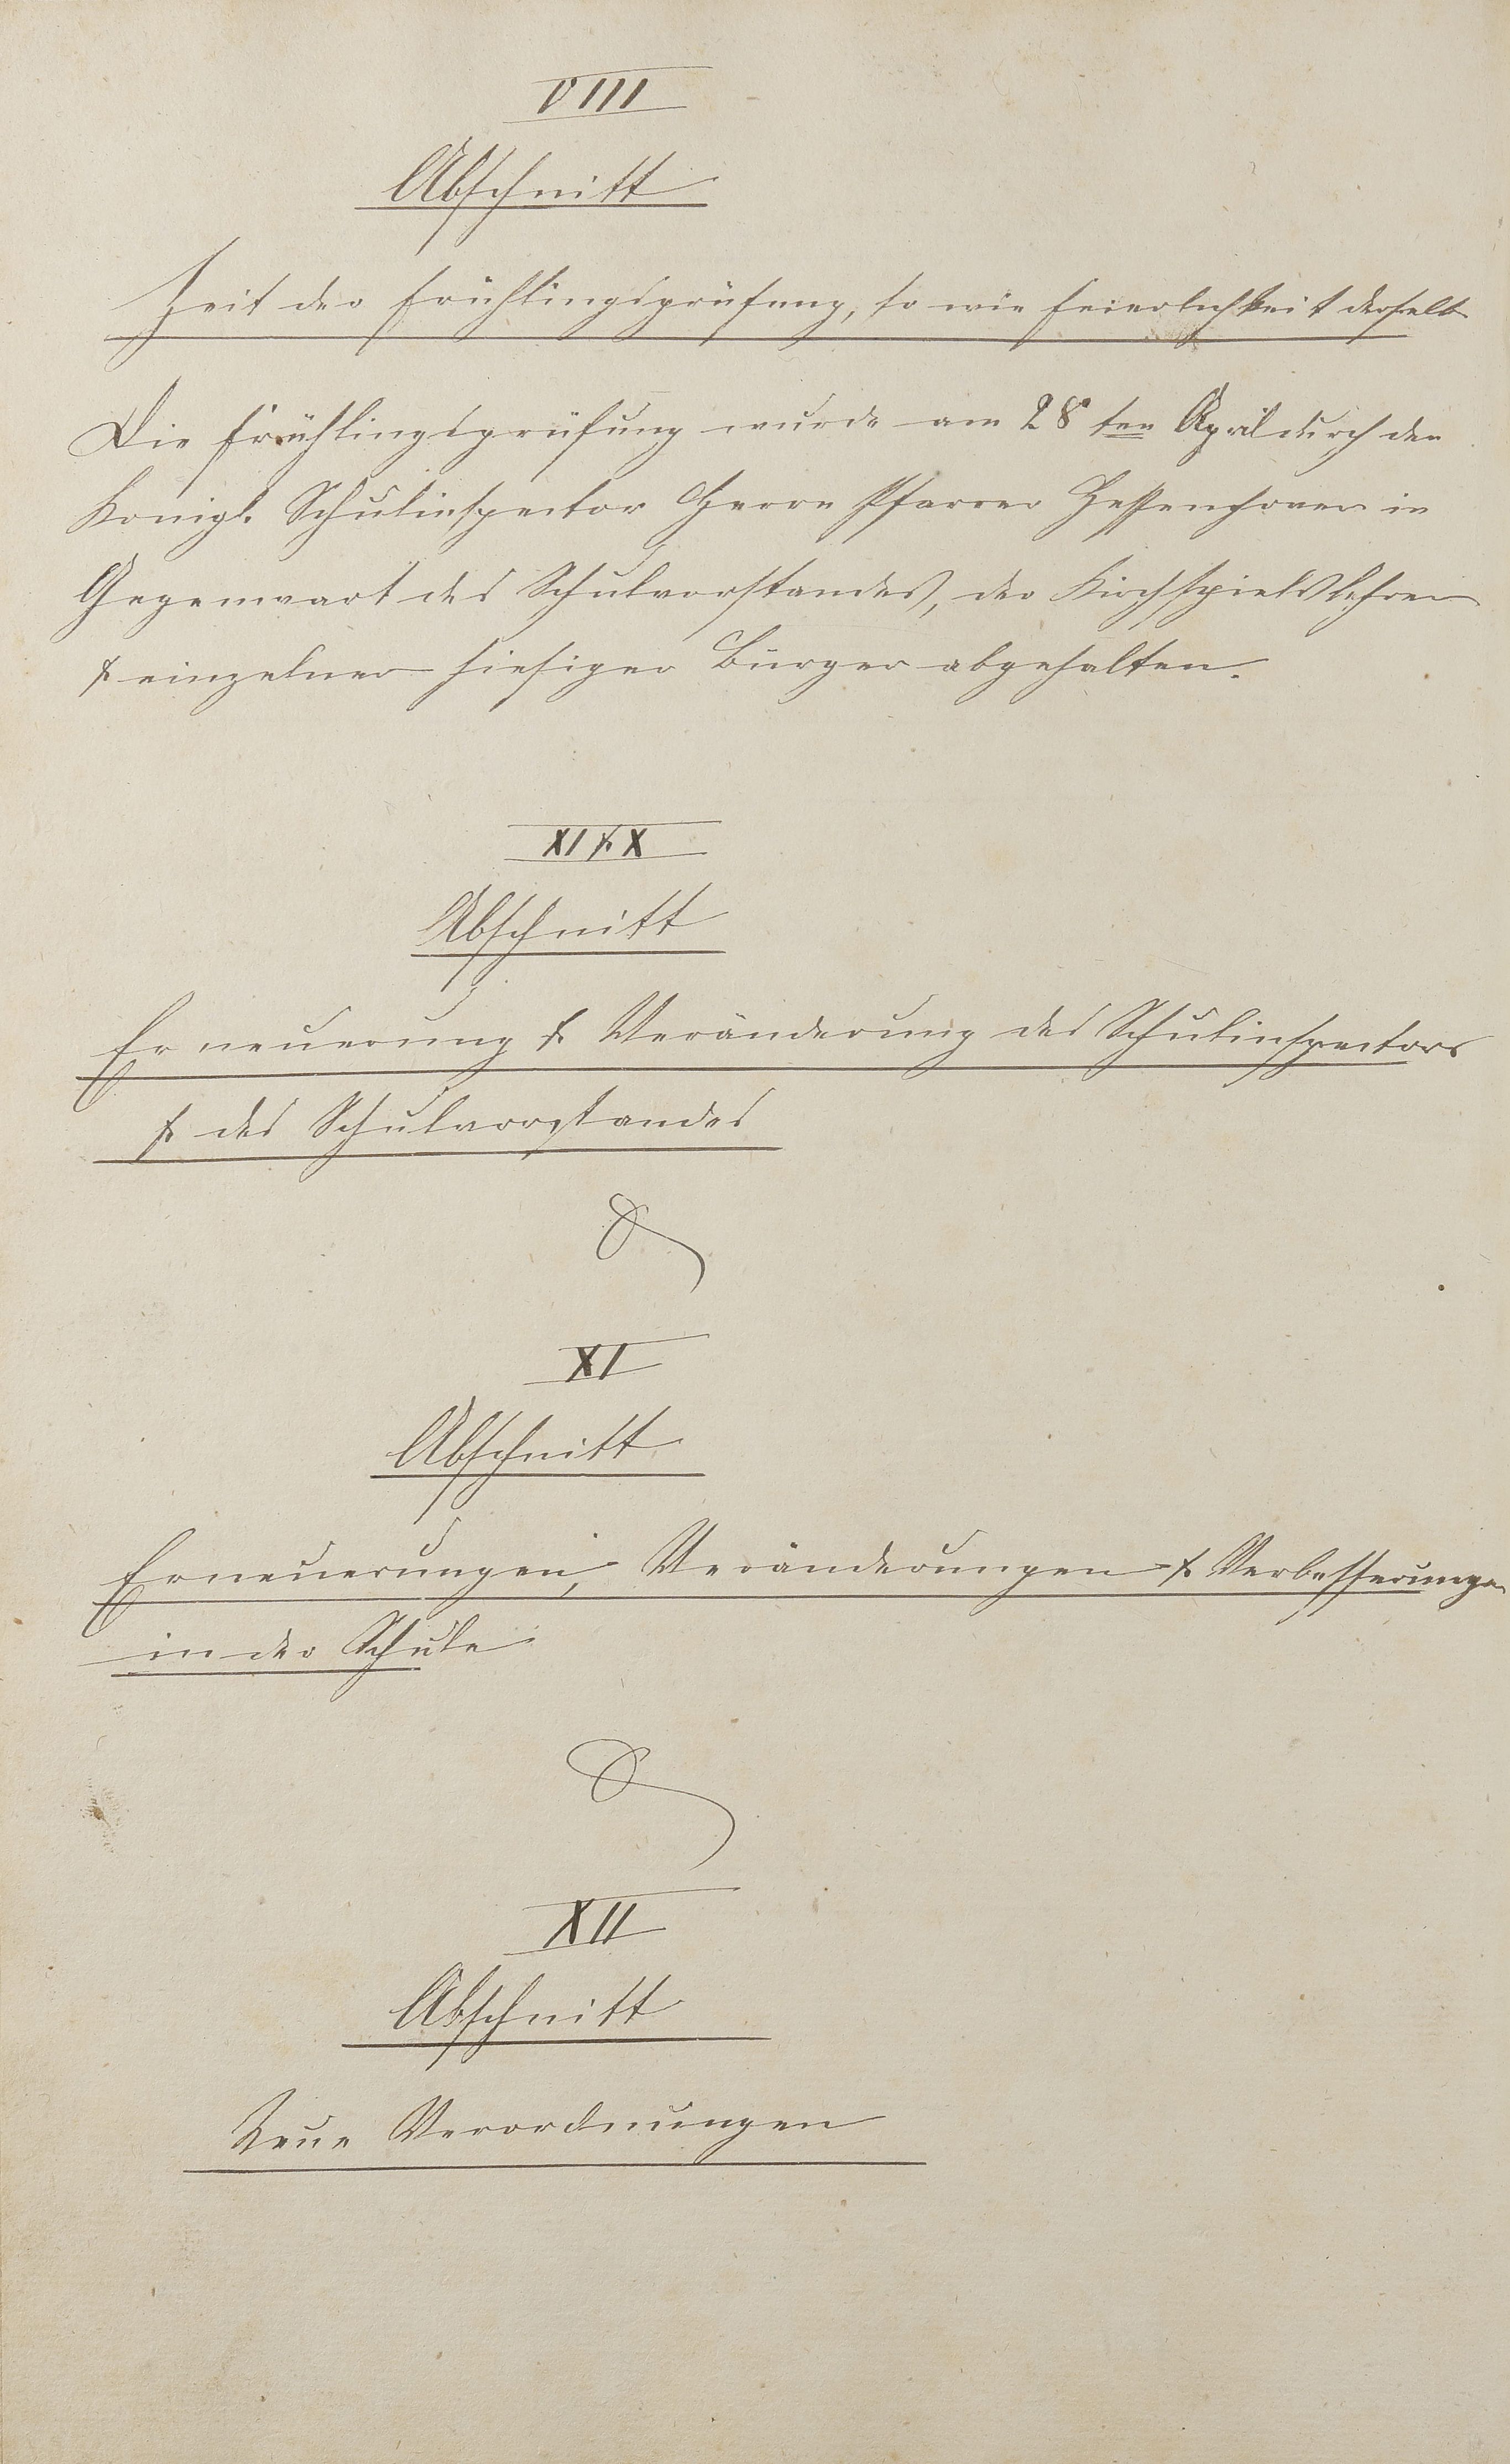 VIII
Abschnitt
Zeit der Frühlingsprüfung, so wie Feierlichkeit derselb.
Die Frühlingsprüfung wurde am 28ten April durch den
Königl. Schulinspector Herrn Pfarrer in
Gegenwart des Schulvorstandes, der Kirchspielslehrer
& einzelner hiesiger Bürger abgehalten.
XI & X
Abschnitt
Erneuerung & Veränderung des Schulinspectors
& des Schulvorstandes
XI
Abschnitt
Erneuerungen, Veränderungen & Verbesserungen
in der Schule
XII
Abschnitt
Neue Verordnungen